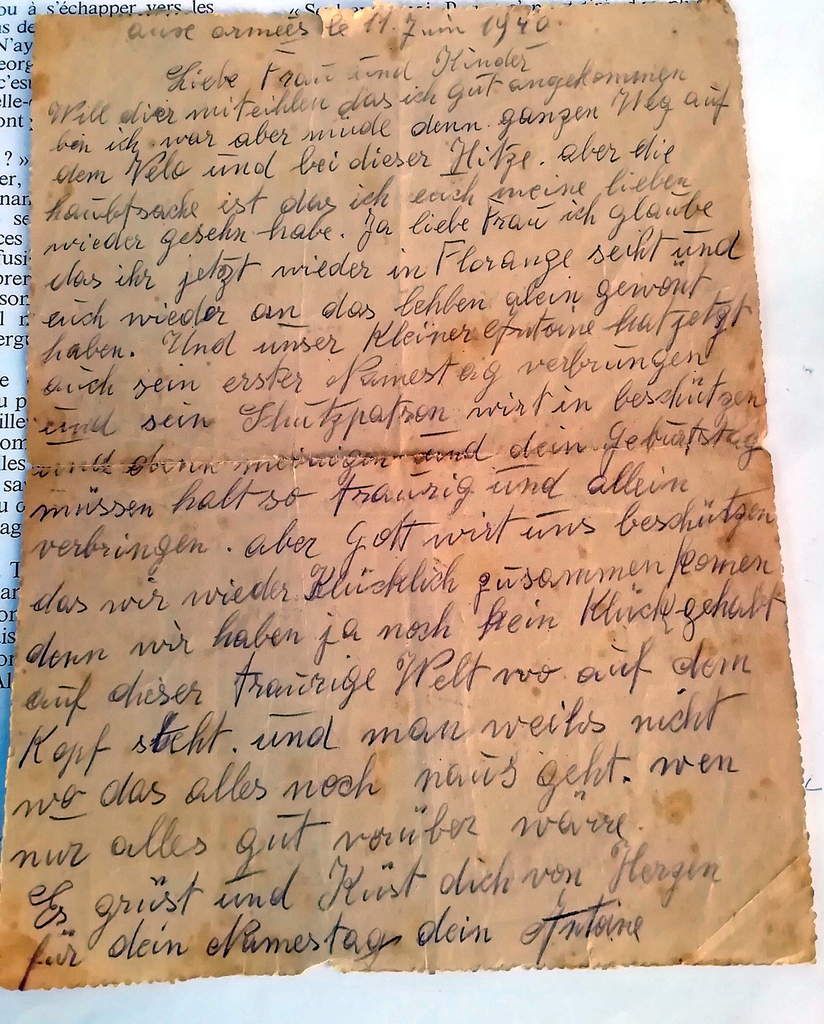 ou à s'échapper vers les
aux armées le 11. Juin 1940.
Liebe Frau und Kinder
Will dier miteihlen das ich gut angekommen
bin ich war aber müde denn ganzen Weg auf
dem Velo und bei dieser Hitze. aber die
haubtsache ist das ich euch meine lieben
wieder gesehn habe. Ja liebe Frau ich glaube
das ihr jetzt wieder in Florange seiht und
euch wieder an das lehben alein gewönt
haben. Und unser Kleiner Antoine hat jetzt
auch sein erster Namestag verbrungen
und sein Schutzpatron wirt in beschützen
und denn meinigen und dein Geburtstag
müssen halt so traurig und allein
verbringen. aber Gott wirt uns beschützen
das wir wieder Klücklich zusammen komen
denn wir haben ja noch kein Klück gehabt
auf dieser traurige Welt wo auf dem
Kopf steht. und man weihs nicht
wo das alles noch naus geht. wen
nur alles gut vorüber wärre.
Es grüst und Küst dich von Herzen
für dein Namestag dein Antoine